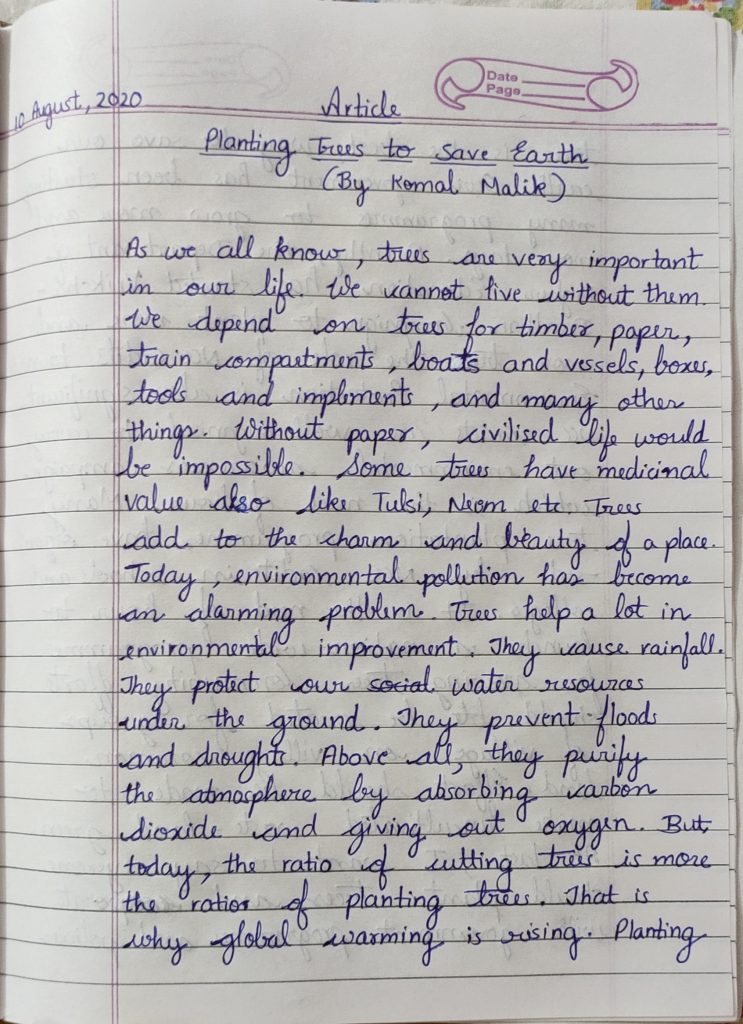 Date
Page
10 August, 2020
Article
Planting Trees to Save Earth
(By Komal Malik)
As we all know, trees are very important
in our life. We cannot live without them.
We depend on trees for timber, paper,
train compartments, boats and vessels, boxes,
tools and implements, and many other
things. Without paper, civilised life would
be impossible. Some trees have medicinal
value also like Tulsi, Neem etc Trees
add to the charm and beauty of a place.
Today, environmental pollution has become
an alarming problem. Trees help a lot in
environmental improvement. They cause rainfall.
They protect our social water resources
under the ground. They prevent floods
and droughts. Above all, they purify
the atmosphere by absorbing carbon
dioxide and giving out oxygen. But,
today, the ratio of cutting trees is more
the ratios of planting trees. That is
why global warming is rising. Planting